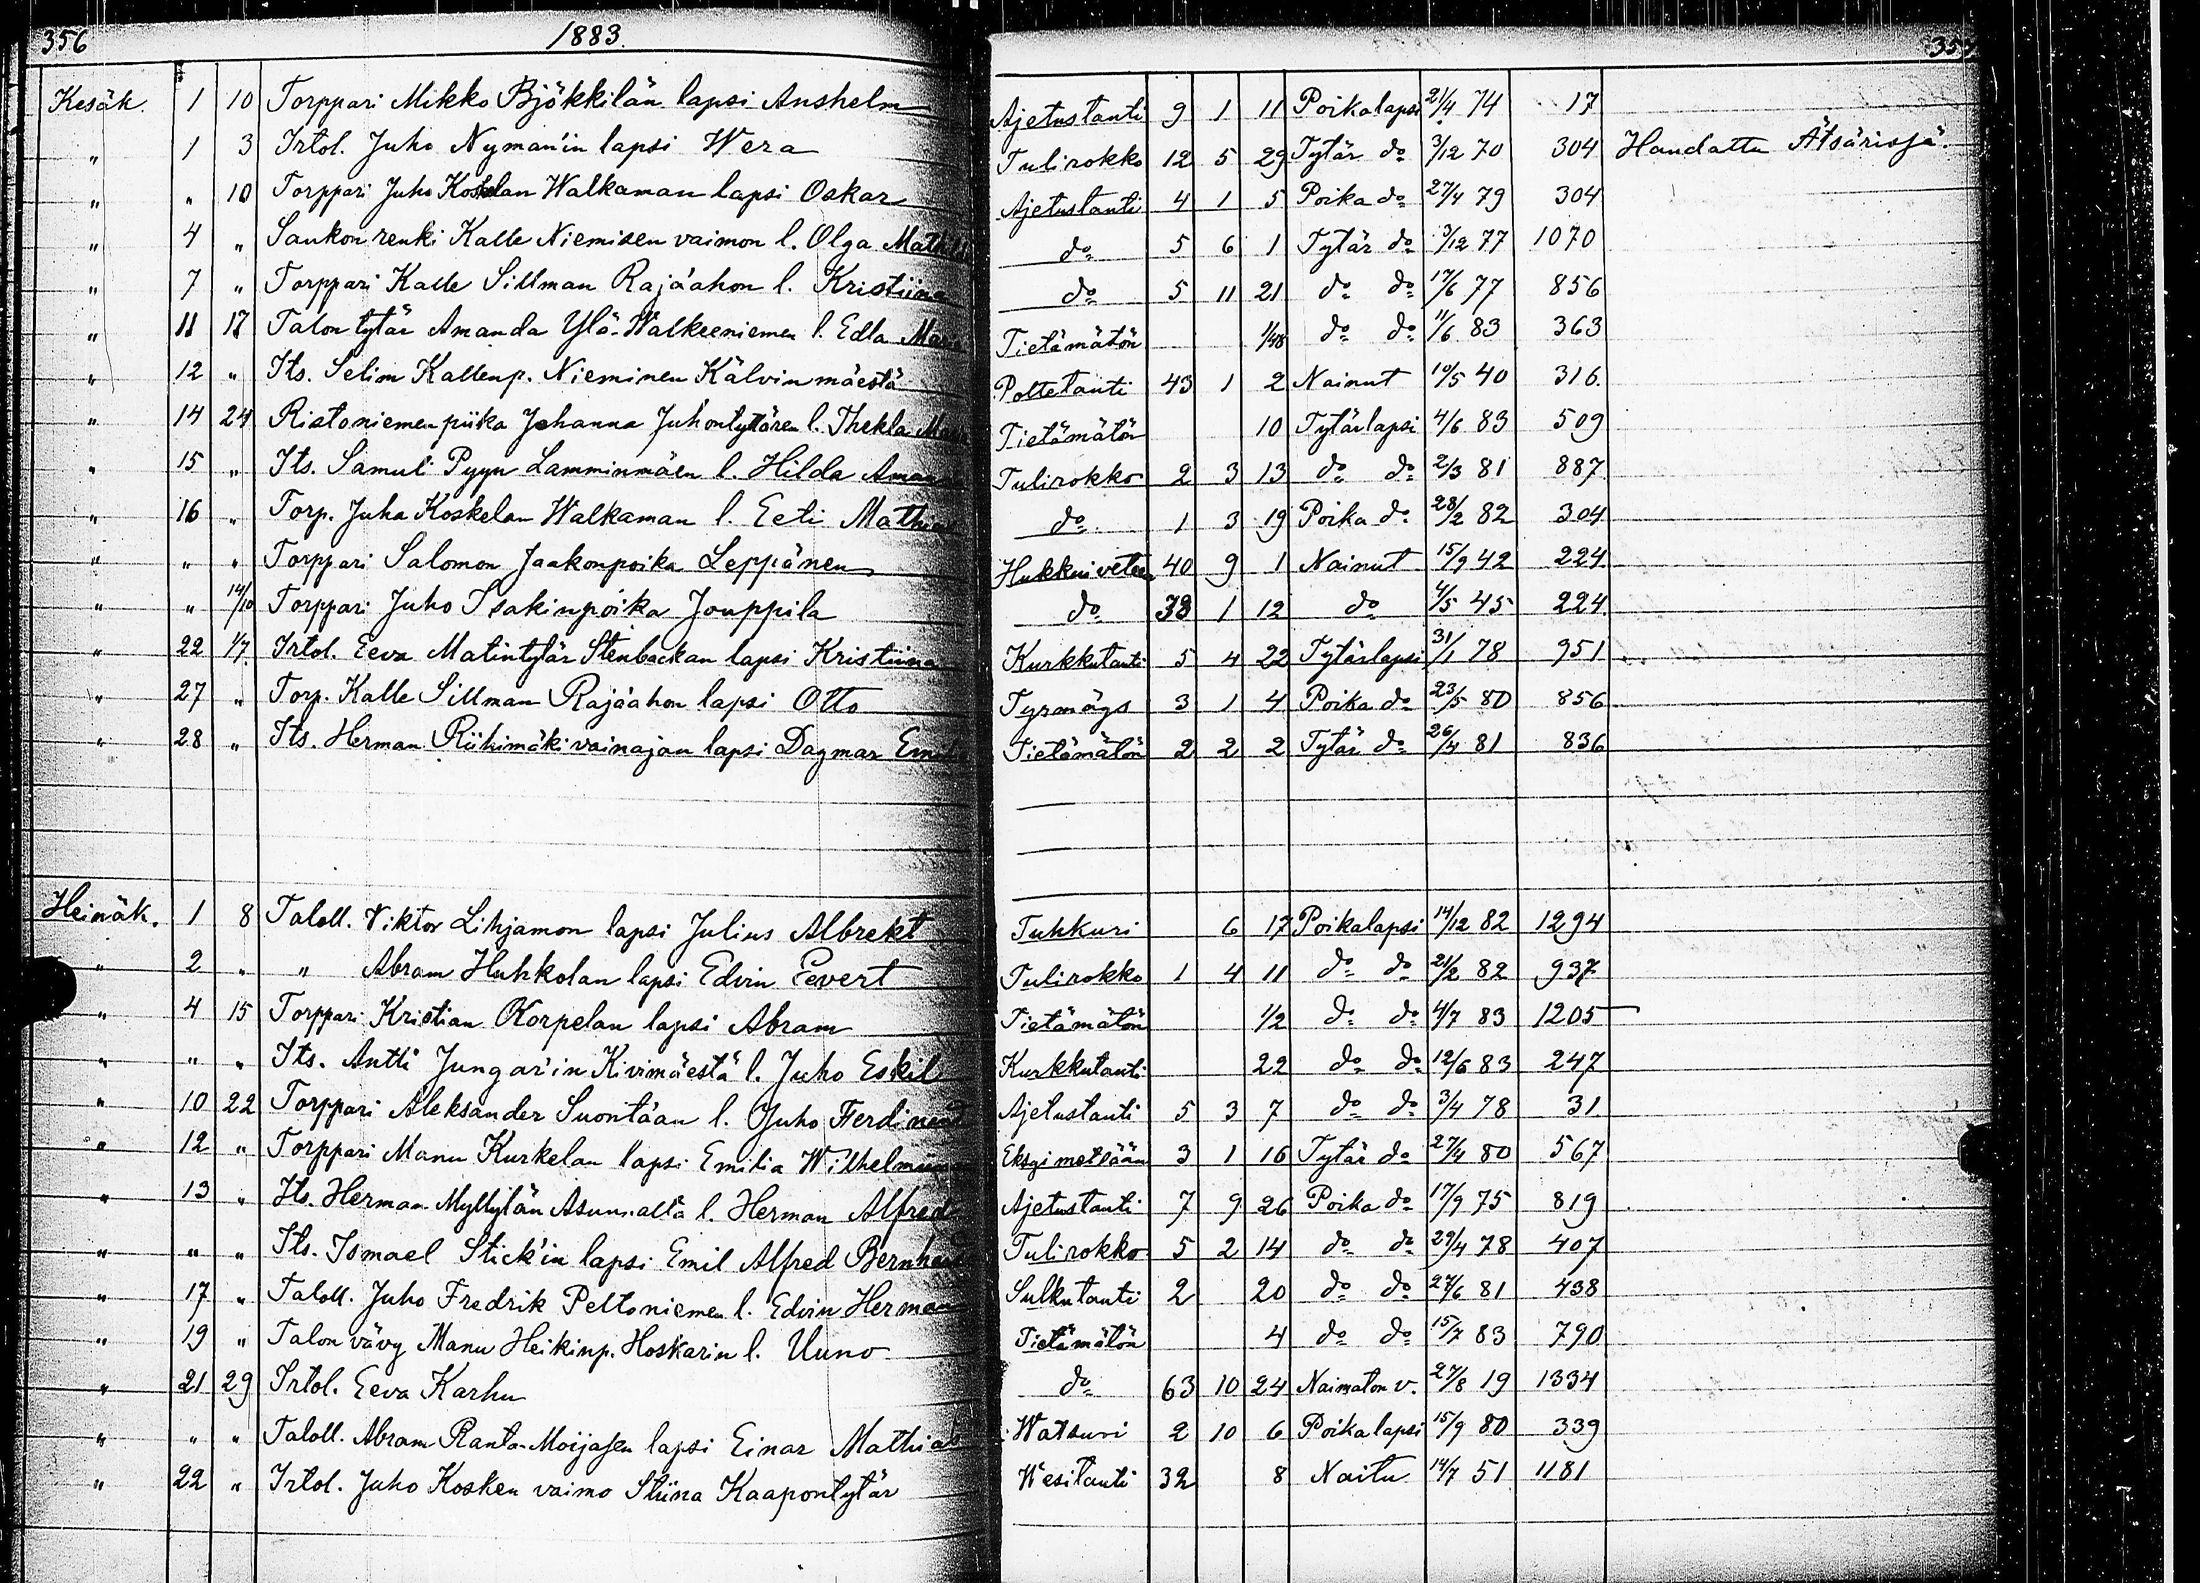 356 1883. 357
Kesäk. 1 10 Torppari Mikko Björkkilän lapsi Anshelm Ajetustauti 9 1 11 Poikalapsi 21/4 74 17
" 1 3 Irtol. Juho Nyman'in lapsi Wera Tulirokko 12 5 29 Tytär do 3/12 70 304 Haudattu Ätsärissä.
" " 10 Torppari Juho Koskelan Walkaman lapsi Oskar Ajetustauti 4 1 5 Poika do 27/4 79 304
" 4 " Saukon renki Kalle Niemisen vaimon l. Olga do 5 6 1 Tytär do 3/12 77 1070
" 7 " Torppari Kalle Sillman Rajaahon l. Kristiina do 5 11 21 do do 17/6 77 856
" 11 17 Talon tytär Amanda Ylä-Walkeeniemen l. Edla Maria Tietämätön 1/48 do do 11/6 83 363
" 12 " Its. Selim Kallenp. Nieminen Kälvinmäestä Poltetauti 43 1 2 Nainut 10/5 40 316.
" 14 24 Ristoniemen piika Johanna Juhontyttären l. Thekla Maria Tietämätön 10 Tytärlapsi 4/6 83 509
" 15 " Its. Samuli Pyyn Lamminmäen l. Hilda Amanda Tulirokko 2 3 13 do do 2/3 81 887
" 16 " Torp. Juha Koskelan Walkaman l. Eeti Mathias do 1 3 19 Poika do 28/2 82 304
" " " Torppari Salomon Jaakonpoika Leppänen Hukkui veteen 40 9 1 Nainut 15/9 42 224
" " 14/10 Torppari Juho Isakinpoika Jouppila do 38 1 12 do 4/5 45 224
" 22 1/7 Irtol. Eeva Matintytär Stenbackan lapsi Kristiina Kurkkutauti 5 4 22 Tytärlapsi 31/1 78 951
" 27 " Torp. Kalle Sillman Rajaahon lapsi Otto Tyrmäys 3 1 4 Poika do 23/5 80 856
" 28 " Its. Herman Riihimäki vainajan lapsi Dagmar Tietämätön 2 2 2 Tytär do 26/4 81 836
Heinäk. 1 8 Taloll. Viktor Lihjamon lapsi Julius Albrekt Tuhkuri 6 17 Poikalapsi 14/12 82 1294
" 2 " " Abram Huhkolan lapsi Edvin Eevert Tulirokko 1 4 11 do do 21/2 82 937
" 4 15 Torppari Kristian Korpelan lapsi Abram Tietämätön 1/2 do do 4/7 83 1205
" " " Its. Antti Jungar'in Kivimäestä l. Juho Eskil Kurkkutauti 22 do do 12/6 83 247
" 10 22 Torppari Aleksander Suontaan l. Juho Ferdinand Ajetustauti 5 3 7 do do 3/4 78 31
" 12 " Torppari Manu Kurkelan lapsi Emilia Wilhelmiina Eksyi metsään 3 1 16 Tytär do 27/4 80 567
" 13 " Its. Herman Myllylän Asunnalta l. Herman Alfred Ajetustauti 7 9 26 Poika do 17/9 75 819
" " " Its. Ismael Stick'in lapsi Emil Alfred Bernhard Tulirokko 5 2 14 do do 29/4 78 407
" 17 " Taloll. Juho Fredrik Peltoniemen l. Edvin Herman Sulkutauti 2 20 do do 27/6 81 438
" 19 " Talon vävy Manu Heikinp. Hoskarin l. Uuno Tietämätön 4 do do 15/7 83 790
" 21 29 Irtol. Eeva Karhu do 63 10 24 Naimaton v. 27/8 19 1334
" " " Taloll. Abram Ranta-Moijasen lapsi Einar Mathias Watsuri 2 10 6 Poikalapsi 15/9 80 339
" 22 " Irtol. Juho Kosken vaimo Stiina Kaapontytär Wesitauti 32 8 Naitu 14/7 51 1181